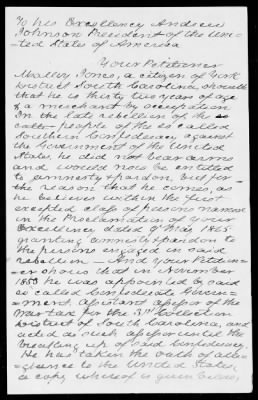 To his Excellency Andrew
Johnson President of the Uni-
ted States of America
Your Petitioner
Jones, a citizen of York
District South Carolina, sheweth
that he is thirty two years of age
& a merchant by occupation
In the late rebellion of the so
called people of the so called
Southern Confederacy against
the Government of the United
States, he did not bear arms
and would now be entitled
to amnesty & pardon, but for
the reason that he comes, as
he believes within the first
excepted class of persons named
in the Proclamation of your
Excellency dated May 1865
granting amnesty & pardon to
the persons engaged in said
rebellion — And your Petition-
er shows that in November
he was appointed by said
so called Confederate Govern-
ment, assistant assessor of the
War tax for the 31st Collection
District of South Carolina, and
acted as such assessor until the
breaking up of said Confederacy.
He has taken the oath of alle-
giance to the United States
a copy whereof is given below,